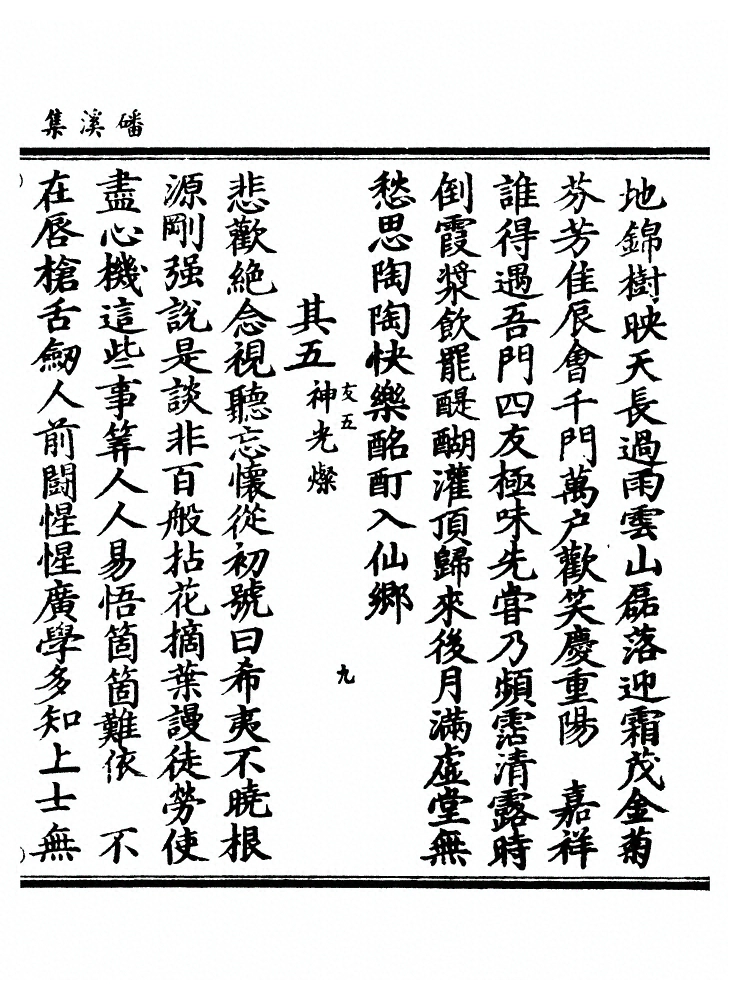 磻溪集
地錦樹映天長過雨雲山磊落迎霜茂金菊
芬芳佳辰會千門萬户歡笑慶重陽　嘉祥
誰得遇吾門四友極味先嘗乃頻霑清露時
倒霞漿飲罷醍醐灌頂歸來後月滿虛堂無
愁思陶陶快樂酩酊入仙鄉
其五神光燦
友五
九
悲歡絶念視聽忘懷從初號曰希夷不曉根
源剛强說是談非百般拈花摘葉謾徒勞使
盡心機這些事筭人人易悟箇箇難依　不
在唇槍舌劒人前鬬惺惺廣學多知上士無